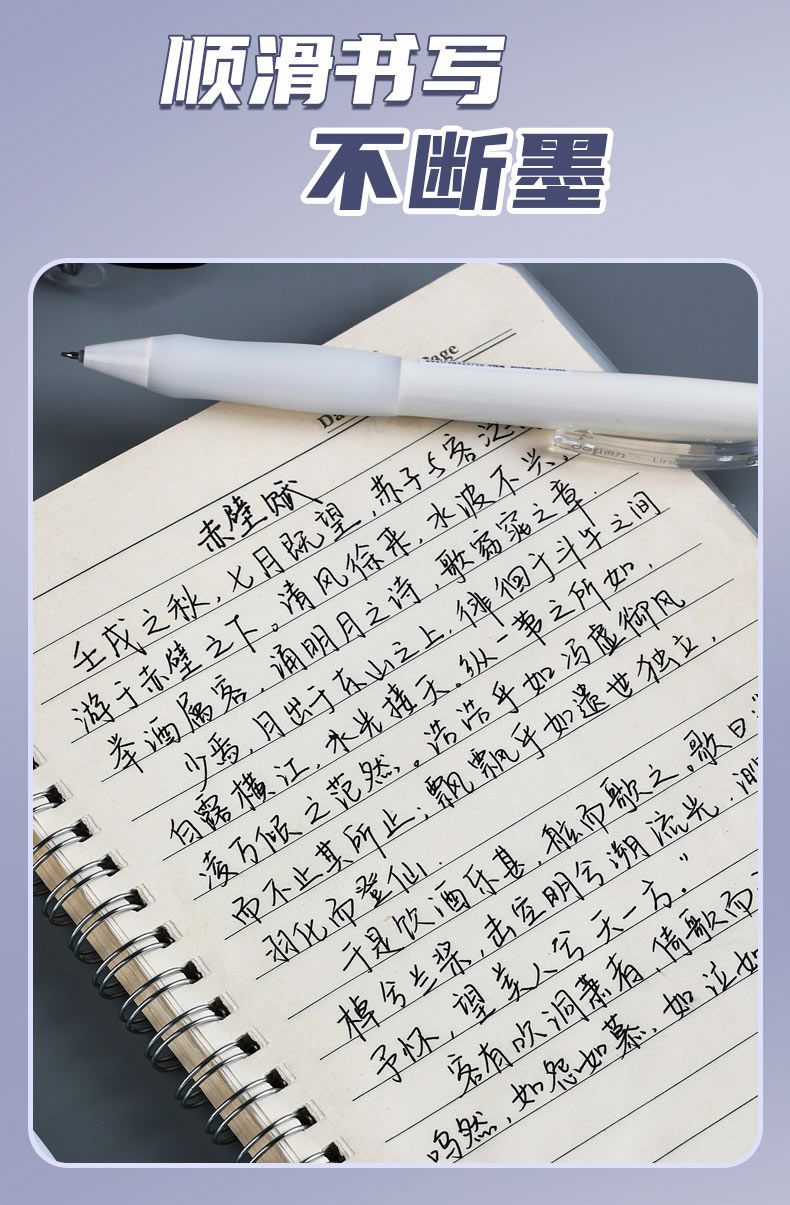 顺滑书写
不断墨
Page
赤壁赋
壬戌之秋,七月既望,苏子与客泛
游于赤壁之下。清风徐来,水波不兴,
举酒属客,诵明月之诗,歌窈窕之章.
少焉,月出于东山之上,徘徊于斗牛之间
白露横江,水光接天。纵一苇之所如,
凌万倾之茫然。浩浩乎如冯虚御风
而不止其所止;飘飘乎如遗世独立,
羽化而登仙.
于是饮酒乐甚,舷而歌之。歌曰
棹兮兰桨,击空明兮溯流光.渺
予怀,望美人兮天一方。"
客有吹洞萧者,倚歌而
呜然,如怨如慕,如泣如